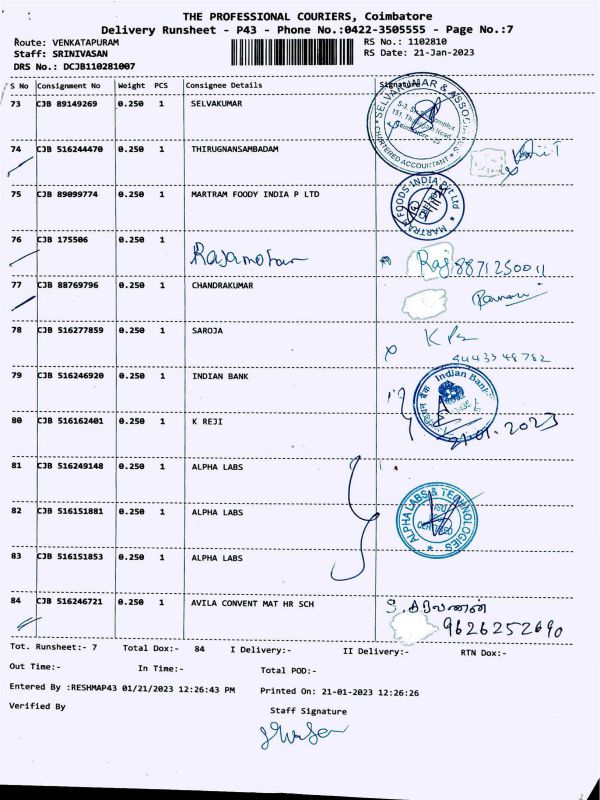 THE PROFESSIONAL COURIERS, Coimbatore
Delivery Runsheet - P43 - Phone No.:0422-3505555 - Page No.:7
Route: VENKATAPURAM RS No.: 1102810
Staff: SRINIVASAN RS Date: 21-Jan-2023
DRS No.: DCJB110281007
S No Consignment No Weight PCS Consignee Details Signature
73 CJB 89149269 0.250 1 SELVAKUMAR
SELVAKUMAR & ASSOC
CHARTERED ACCOUNTANT
74 CJB 516244470 0.250 1 THIRUGNANSAMBADAM
75 CJB 89099774 0.250 1 MARTRAM FOODY INDIA P LTD
MARTRAM FOODS INDIA Pvt Ltd
76 CJB 175506 0.250 1 Rajamohan Raj 8871250011
77 CJB 88769796 0.250 1 CHANDRAKUMAR
78 CJB 516277859 0.250 1 SAROJA
79 CJB 516246920 0.250 1 INDIAN BANK
Indian Bank
80 CJB 516162401 0.250 1 K REJI
21.01.2023
81 CJB 516249148 0.250 1 ALPHA LABS
82 CJB 516151881 0.250 1 ALPHA LABS
ALPHA LABS & TECHNOLOGIES
83 CJB 516151853 1 0.250 ALPHA LABS
84 CJB 516246721 0.250 1 AVILA CONVENT MAT HR SCH
9626252690
Tot. Runsheet:- 7 Total Dox:- 84 I Delivery:- II Delivery:- RTN Dox:-
Out Time:- In Time:- Total POD:-
Entered By :RESHMAP43 01/21/2023 12:26:43 PM Printed On: 21-01-2023 12:26:26
Verified By Staff Signature